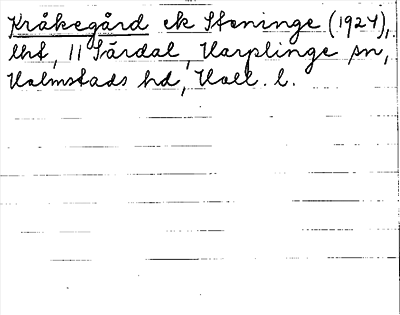 Kråkegård ek Steninge (1924),
lht, 11 Särdal, Harplinge sn,
Halmstads hd, Hall. l.